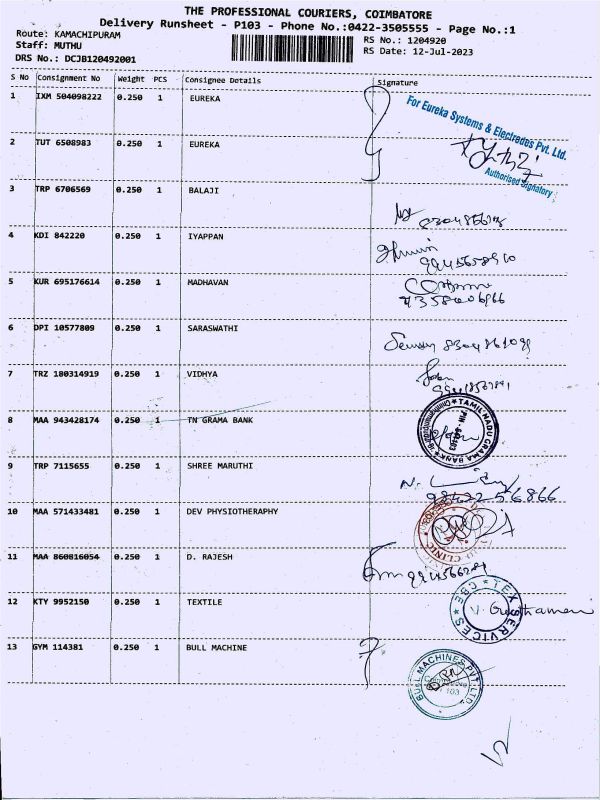 THE PROFESSIONAL COURIERS, COIMBATORE
Delivery Runsheet - P103 - Phone No.:0422-3505555 - Page No.:1
Route: KAMACHIPURAM
Staff: MUTHU
DRS No.: DCJB120492001
RS No.: 1204920
RS Date: 12-Jul-2023
S No Consignment No Weight PCS Consignee Details Signature
1 IXM 504098222 0.250 1 EUREKA
For Eureka Systems & Electrodes Pvt. Ltd.
Authorised Signatory
2 TUT 6508983 0.250 1 EUREKA
3 TRP 6706569 0.250 1 BALAJI
4 KDI 842220 0.250 1 IYAPPAN
9945658910
5 KUR 695176614 0.250 1 MADHAVAN
6 DPI 10577809 0.250 1 SARASWATHI
7 TRZ 180314919 0.250 1 VIDHYA
8 MAA 943428174 0.250 1 TN GRAMA BANK
TAMIL NADU GRAMA BANK
9 TRP 7115655 0.250 1 SHREE MARUTHI
9842256866
10 MAA 571433481 0.250 1 DEV PHYSIOTHERAPHY
CLINIC
11 MAA 860816054 0.250 1 D. RAJESH
12 KTY 9952150 0.250 1 TEXTILE
TEX SERVICES * CBE *
13 GYM 114381 0.250 1 BULL MACHINE
BULL MACHINES PVT LTD